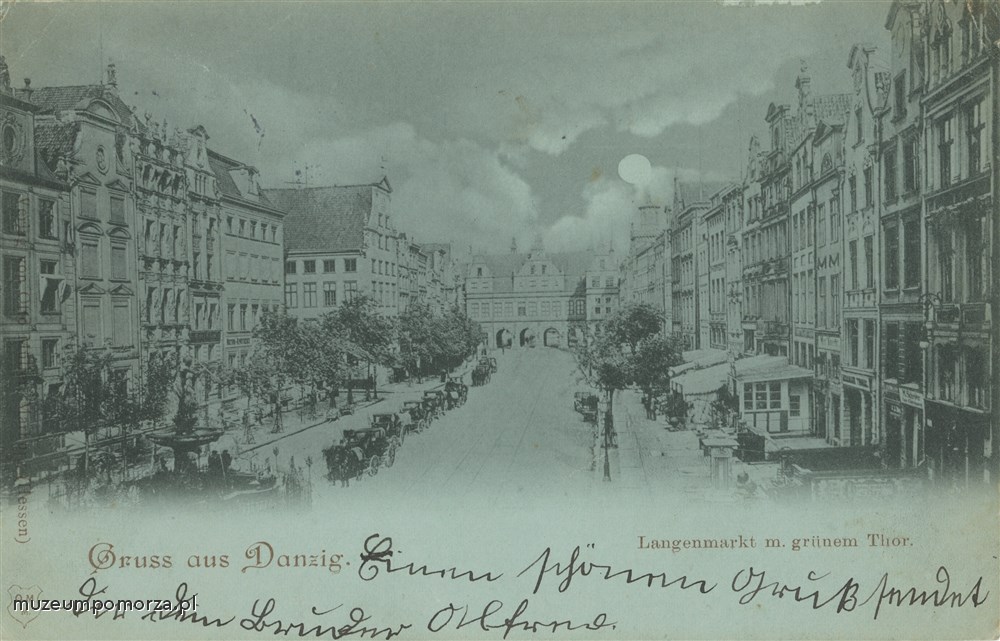 Gruss aus Danzig.
Langenmarkt m. grünem Thor.
Einen schönen Gruß sendet
Dir dem Bruder Alfred.
essen)
muzeumpomorza.pl